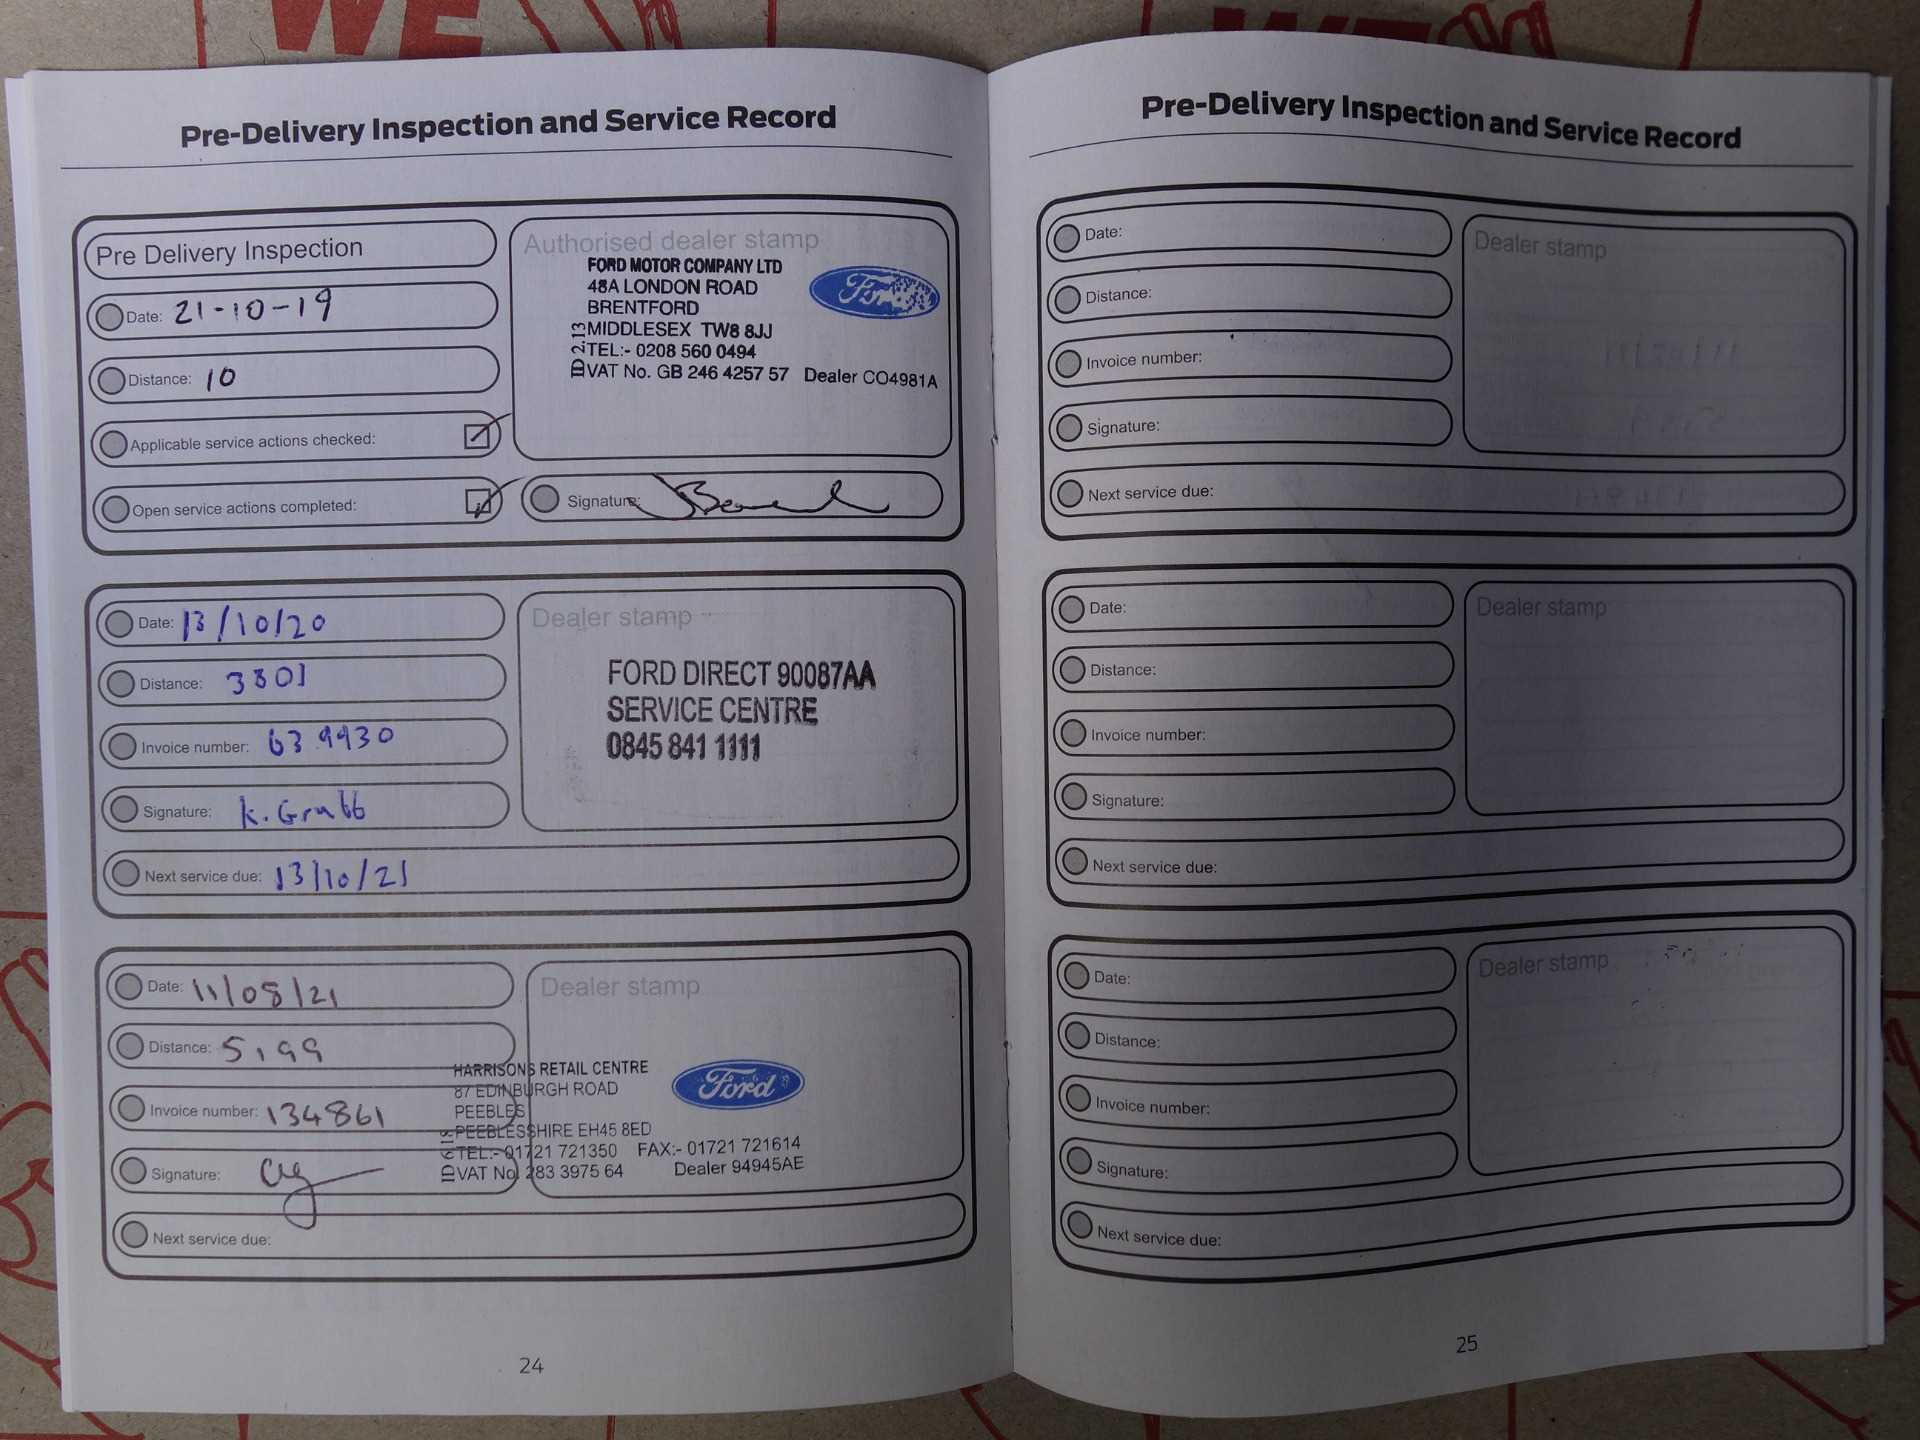 WE
WE
Pre-Delivery Inspection and Service Record
Pre Delivery Inspection
Date: 21-10-19
Distance: 10
Applicable service actions checked:
Open service actions completed:
Authorised dealer stamp
FORD MOTOR COMPANY LTD
48A LONDON ROAD
BRENTFORD
MIDDLESEX TW8 8JJ
TEL:- 0208 560 0494
VAT No. GB 246 4257 57 Dealer CO4981A
ID 2.13
Ford
Signature:
Date: 13/10/20
Distance: 3801
Invoice number: 639930
Signature: K. Grubb
Next service due: 13/10/21
Dealer stamp
FORD DIRECT 90087AA
SERVICE CENTRE
0845 841 1111
Date: 11/08/21
Distance: 5,199
Invoice number: 134861
Signature:
Next service due:
Dealer stamp
HARRISONS RETAIL CENTRE
87 EDINBURGH ROAD
PEEBLES
PEEBLESSHIRE EH45 8ED
TEL:- 01721 721350 FAX:- 01721 721614
VAT No. 283 3975 64 Dealer 94945AE
Ford
24
Pre-Delivery Inspection and Service Record
Date:
Distance:
Invoice number:
Signature:
Next service due:
Dealer stamp
Date:
Distance:
Invoice number:
Signature:
Next service due:
Dealer stamp
Date:
Distance:
Invoice number:
Signature:
Next service due:
Dealer stamp
25